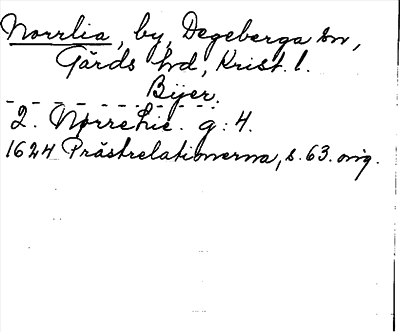 Norrlia, by, Degeberga sn,
Gärds hd, Krist. l.
Byer.
2. Nørrehie. g: 4.
1624 Prästrelationerna, s. 63. orig.